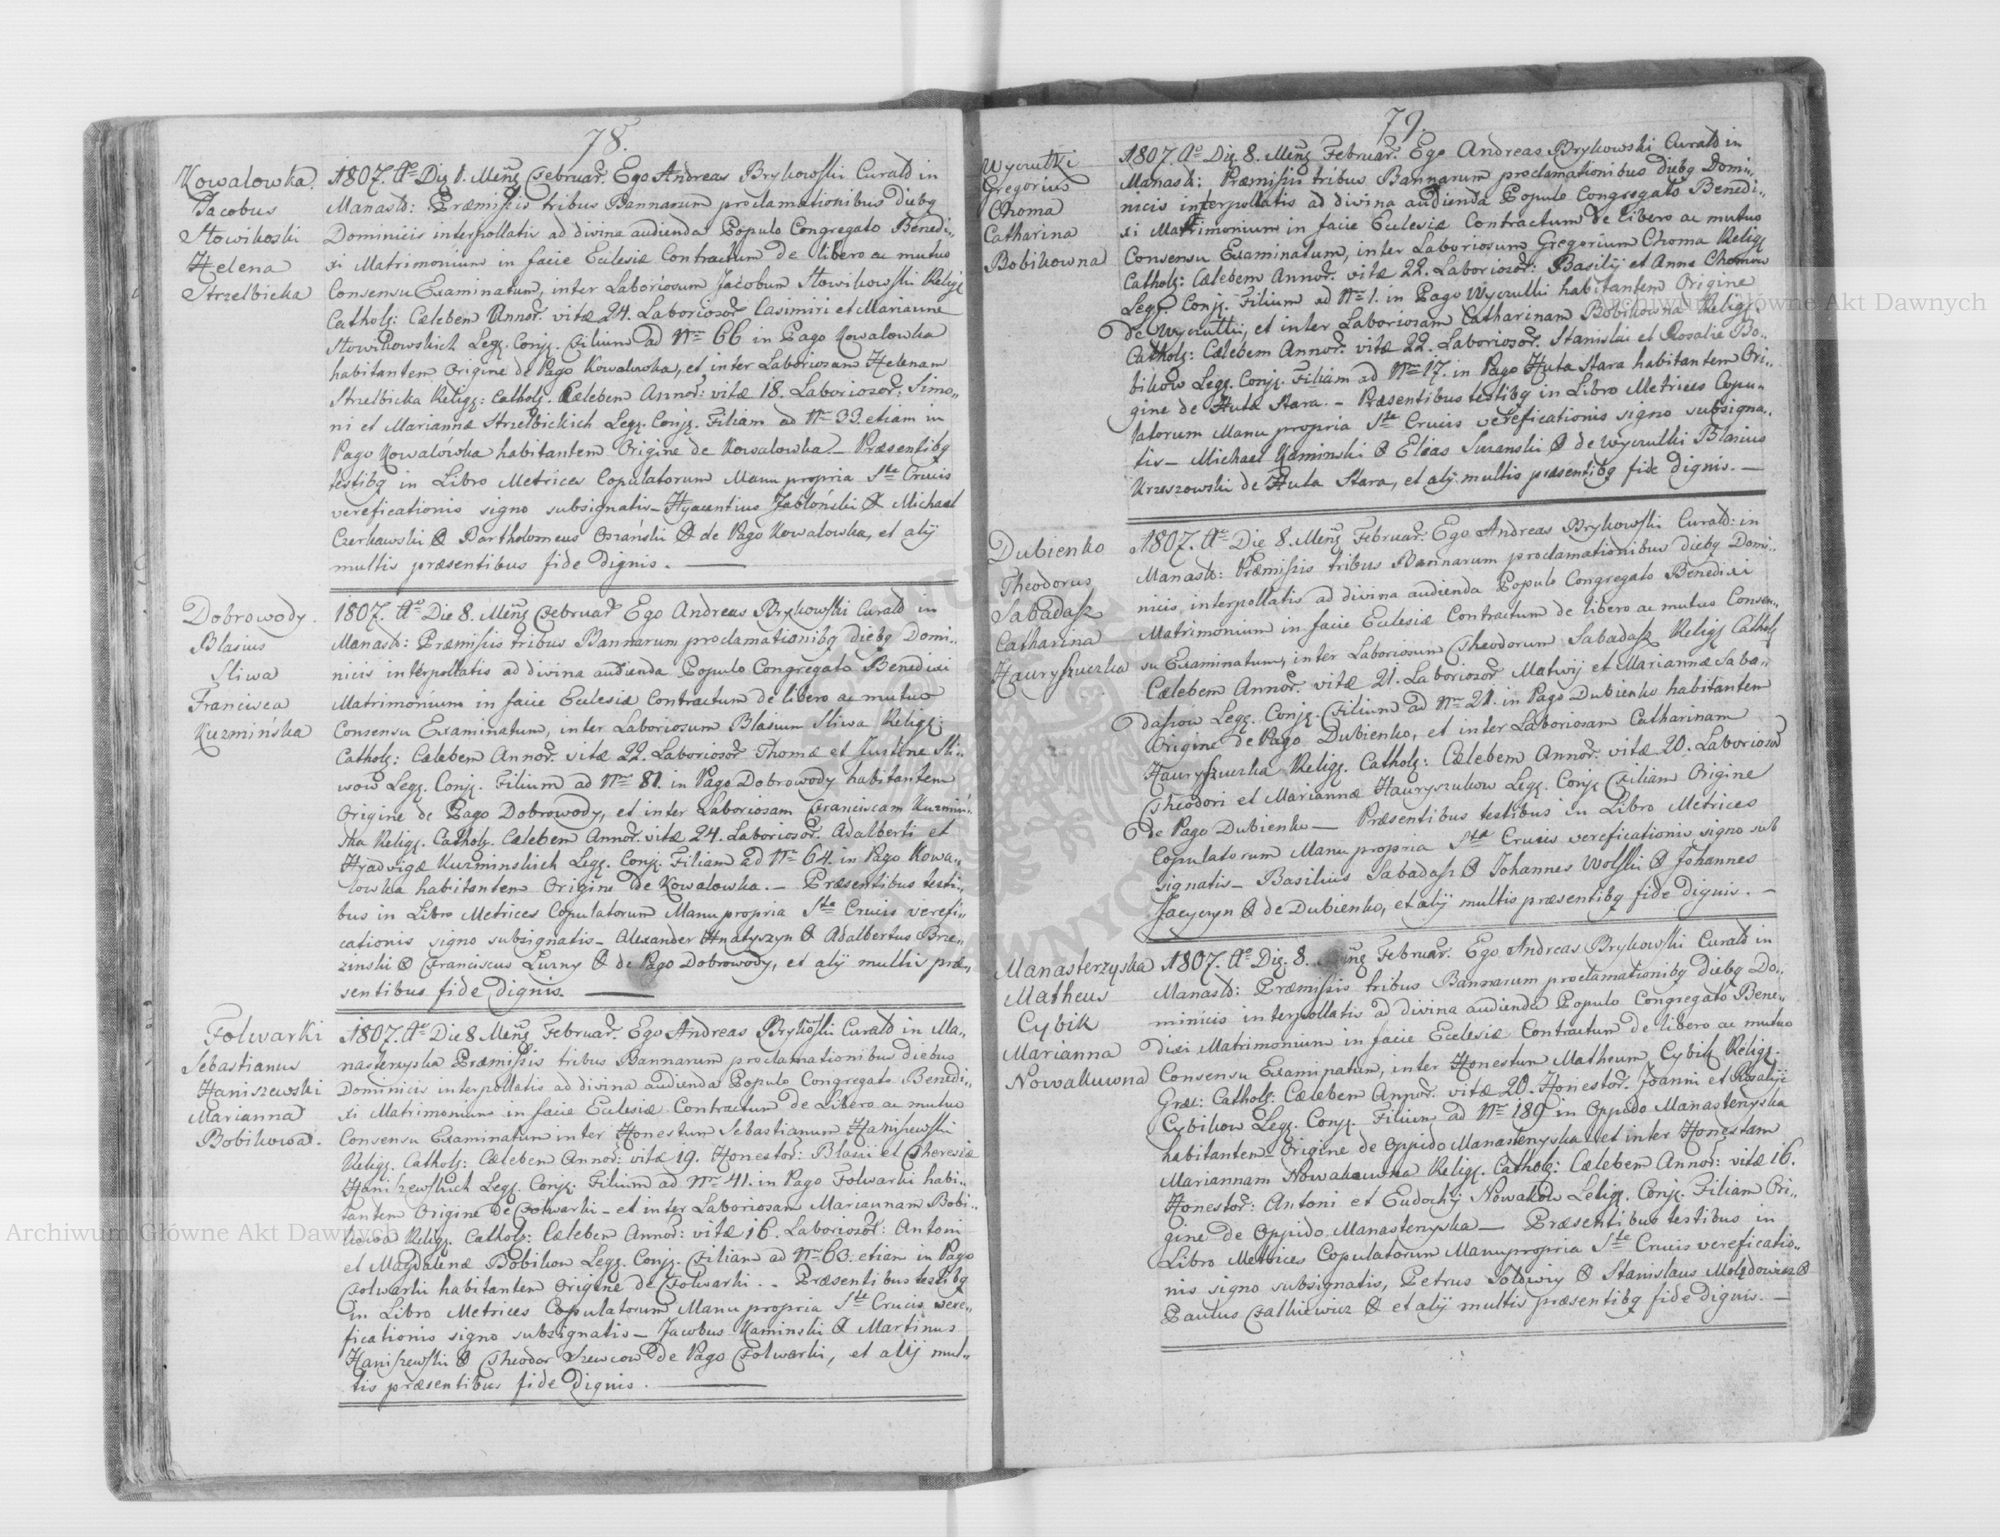 78.
Kowalowka.
Jacobus
Słowikoski
Helena
Strzelbicka
1807. Ao Die 8. Mens Februar. Ego Andreas Brykowski Curald in
Manast: Præmissis tribus Bannarum proclamationibus diebq
Dominicis interpollatis ad divina audienda Populo Congregato Benedi-
xi Matrimonium in facie Eclesiæ Contractum de libero ac mutuo
Consensu Examinatum, inter Laboriosum Jacobum Słowikowski Relig
Cathol: Cælebem Annor. vitæ 24. Laboriosor Casimiri et Marianne
Słowikowskich Leg. Conj. Filium ad Nr 66 in Pago Kowalowka
habitantem Origine de Pago Kowalowka, et inter Laboriosam Helenam
Strzelbicka Relig: Cathol. Cælebem Annor: vitæ 18. Laboriosor: Simo-
ni et Mariannæ Strzelbickich Leg. Conj. Filiam ad Nr 33 etiam in
Pago Kowalówka habitantem Origine de Kowalowka - Præsentibq
testibq in Libro Metrices Copulatorum Manu propria Ste Crucis
vereficationis signo subsignatis - Hyacintius Jabłoński & Michael
Czerkawski & Bartholomeus & de Pago Kowalowka, et alij
multis præsentibus fide dignis. —
Dobrowody.
Blasius
Sliwa
Francisca
Kuzmińska
1807. Ao Die 8. Mens Februar Ego Andreas Brykowski Curald in
Manast: Præmissis tribus Bannarum proclamationibq diebq Domi-
nicis interpollatis ad divina audienda Populo Congregato Benedixi
Matrimonium in facie Eclesiæ Contractum de libero ac mutuo
Consensu Examinatum, inter Laboriosum Blasium Sliwa Relig:
Cathol: Cælebem Annor. vitæ 22. Laboriosor Thomæ et Justine Sli-
wow Leg. Conj. Filium ad Nr 81. in Pago Dobrowody habitantem
Origine de Pago Dobrowody, et inter Laboriosam Franciscam Kuzmiń-
ska Relig. Cathol. Cælebem Annor. vitæ 24. Laboriosor. Adalberti et
Hyadvigæ Kuzminskich Leg. Conj. Filiam ad Nr 64. in Pago Kowa-
lowka habitantem Origine de Kowalowka. - Præsentibus testi-
bus in Libro Metrices Copulatorum Manu propria Ste Crucis verefi-
cationis signo subsignatis - Alexander Hnatyszyn & Adalbertus Brze-
zinski & Franciscus Lurny & de Pago Dobrowody, et alij multis præ-
sentibus fide dignis. —
Folwarki
Sebastianus
Haniszewski
Marianna
Bobikowa.
1807. Ao Die 8 Mens Februar. Ego Andreas Brykoski Curald in Ma-
nasterzyska Præmissis tribus Bannarum proclamationibus diebus
Dominicis interpollatis ad divina audienda Populo Congregato Benedi-
xi Matrimonium in facie Eclesiæ Contractum de Libero ac mutuo
Consensu Examinatum inter Honestum Sebastianum Haniszewski
Relig. Cathol: Cælebem Annor: vitæ 19. Honestor: Blasii et Theresiæ
Haniszewskich Leg. Conj. Filium ad Nr 41. in Pago Folwarki habi-
tantem Origine de Folwarki - et inter Laboriosam Mariannam Bobi-
kowa Relig. Cathol: Cæleben Annor: vitæ 16. Laboriosor: Antoni
et Magdalenæ Bobikow Leg. Conj. Filiam ad Nr 63. etiam in Pago
Folwarki habitantem Origine de Folwarki. - Præsentibus testibq
in Libro Metrices Copulatorum Manu propria Ste Crucis vere-
ficationis signo subsignatis - Jacobus Kaminski & Martinus
Haniszewski & Theodor Szewcow de Pago Folwarki, et alij mul-
tis præsentibus fide dignis. —
79.
Wyczułki
Gregorius
Choma
Catharina
Bobikowna
1807. Ao Die 8. Mens Februar. Ego Andreas Brykowski Curald in
Manast: Præmissis tribus Bannarum proclamationibus diebq Domi-
nicis interpollatis ad divina audienda Populo Congregato Benedi-
xi Matrimonium in facie Eclesiæ Contractum de libero ac mutuo
Consensu Examinatum, inter Laboriosum Gregorium Choma Relig
Cathol: Cælebem Annor. vitæ 22. Laboriosor: Basilij et Anne Chomow
Leg. Conj. Filium ad Nr 1. in Pago Wyczulki habitantem Origine
de Wyczułki, et inter Laboriosam Catharinam Bobikowna Relig.
Cathol: Cælebem Annor. vitæ 22. Laboriosor. Stanislai et Rosalie Bo-
bikow Leg. Conj. Filiam ad Nr 17. in Pago Huta Stara habitantem Ori-
gine de Huta Stara. - Præsentibus testibq in Libro Metrices Copu-
latorum Manu propria Ste Crucis vereficationis signo subsigna-
tis - Michael Kaminski & Elias Suzanski & de Wyczulki Blasius
Krzeszowski de Huta Stara, et alij multis præsentibq fide dignis. —
Dubienko
Theodorus
Sabadasz
Catharina
Hauryszuczka
1807. Ao Die 8. Mens Februar. Ego Andreas Brykowski Curald: in
Manast: Præmissis tribus Bannarum proclamationibus diebq Domi-
nicis, interpollatis ad divina audienda Populo Congregato Benedixi
Matrimonium in facie Eclesiæ Contractum de libero ac mutuo Consen-
su Examinatum, inter Laboriosum Theodorum Sabadasz Relig Cathol
Cælebem Annor. vitæ 21. Laboriosor Matwij et Mariannæ Saba-
daszow Leg. Conj. Filium ad Nr 21. in Pago Dubienko habitantem
Origine de Pago Dubienko, et inter Laboriosam Catharinam
Hauryszuczka Relig. Cathol: Cælebem Annor. vitæ 20. Laboriosor
Theodori et Mariannæ Hauryszukow Leg. Conj Filiam Origine
de Pago Dubienko — Præsentibus testibus in Libro Metrices
Copulatorum Manu propria Sta Crucis vereficationis signo sub
signatis - Basilius Sabadasz & Johannes Wolski & Johannes
& de Dubienko, et alij multis præsentibq fide dignis. -
Manasterzyska
Matheus
Cybik
Marianna
Nowakuwna
1807. Ao Die 8. Mens Februar. Ego Andreas Brykowski Curald in
Manast: Præmissis tribus Bannarum proclamationibq diebq Do-
minicis interpollatis ad divina audienda Populo Congregato Bene-
dixi Matrimonium in facie Eclesiæ Contractum de libero ac mutuo
Consensu Examinatum, inter Honestum Matheum Cybik Relig.
Græc: Cathol: Cælebem Annor. vitæ 20. Honestor. Joanni et Rosalije
Cybikow Leg. Conj. Filium ad Nr 189 in Oppido Manasterzyska
habitantem Origine de Oppido Manasterzyska et inter Honestam
Mariannam Nowakuwna Relig. Cathol: Cælebem Annor: vitæ 16.
Honestor: Antoni et Eudochij Nowakow Leg. Conj. Filiam Ori-
gine de Oppido Manasterzyska — Præsentibus testibus in
Libro Metrices Copulatorum Manu propria Ste Crucis vereficatio-
nis signo subsignatis, Petrus Soldwiy & Stanislaus &
Paulus Falkiewicz & et alij multis præsentibq fide dignis. —
Archiwum Główne Akt Dawnych
Archiwum Główne Akt Dawnych